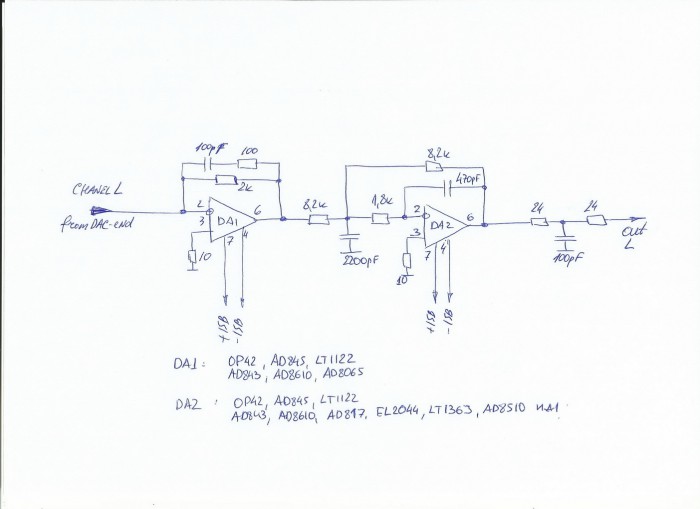 100pF 100
2k
CHANEL L
from DAC-end
2
3
DA1
6
7
4
10
+15B
-15B
8,2k
2200pF
1,8k
8,2k
470pF
2
3
DA2
6
7
4
10
+15B
-15B
24
24
100pF
out
L
DA1: OP42, AD845, LT1122
AD843, AD8610, AD8065
DA2: OP42, AD845, LT1122
AD843, AD8610, AD817, EL2044, LT1363, AD8510